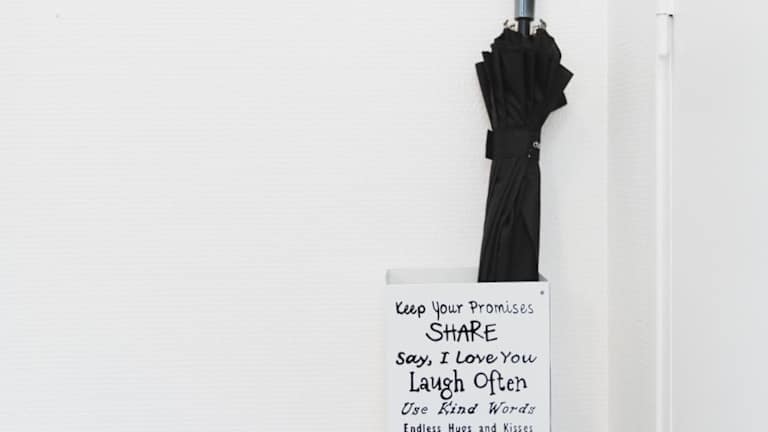 Keep Your Promises
SHARE
Say, I Love You
Laugh Often
Use Kind Words
Endless Hugs and Kisses